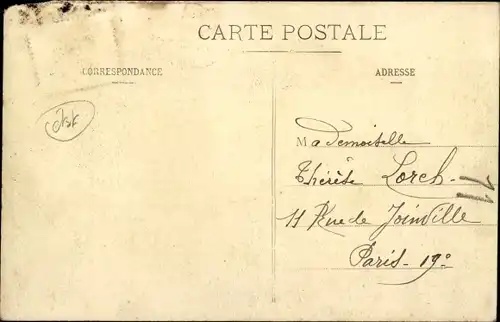 CARTE POSTALE
CORRESPONDANCE
ADRESSE
Mademoiselle
Thérèse Lorch
11 Rue de Joinville
Paris - 19º
11